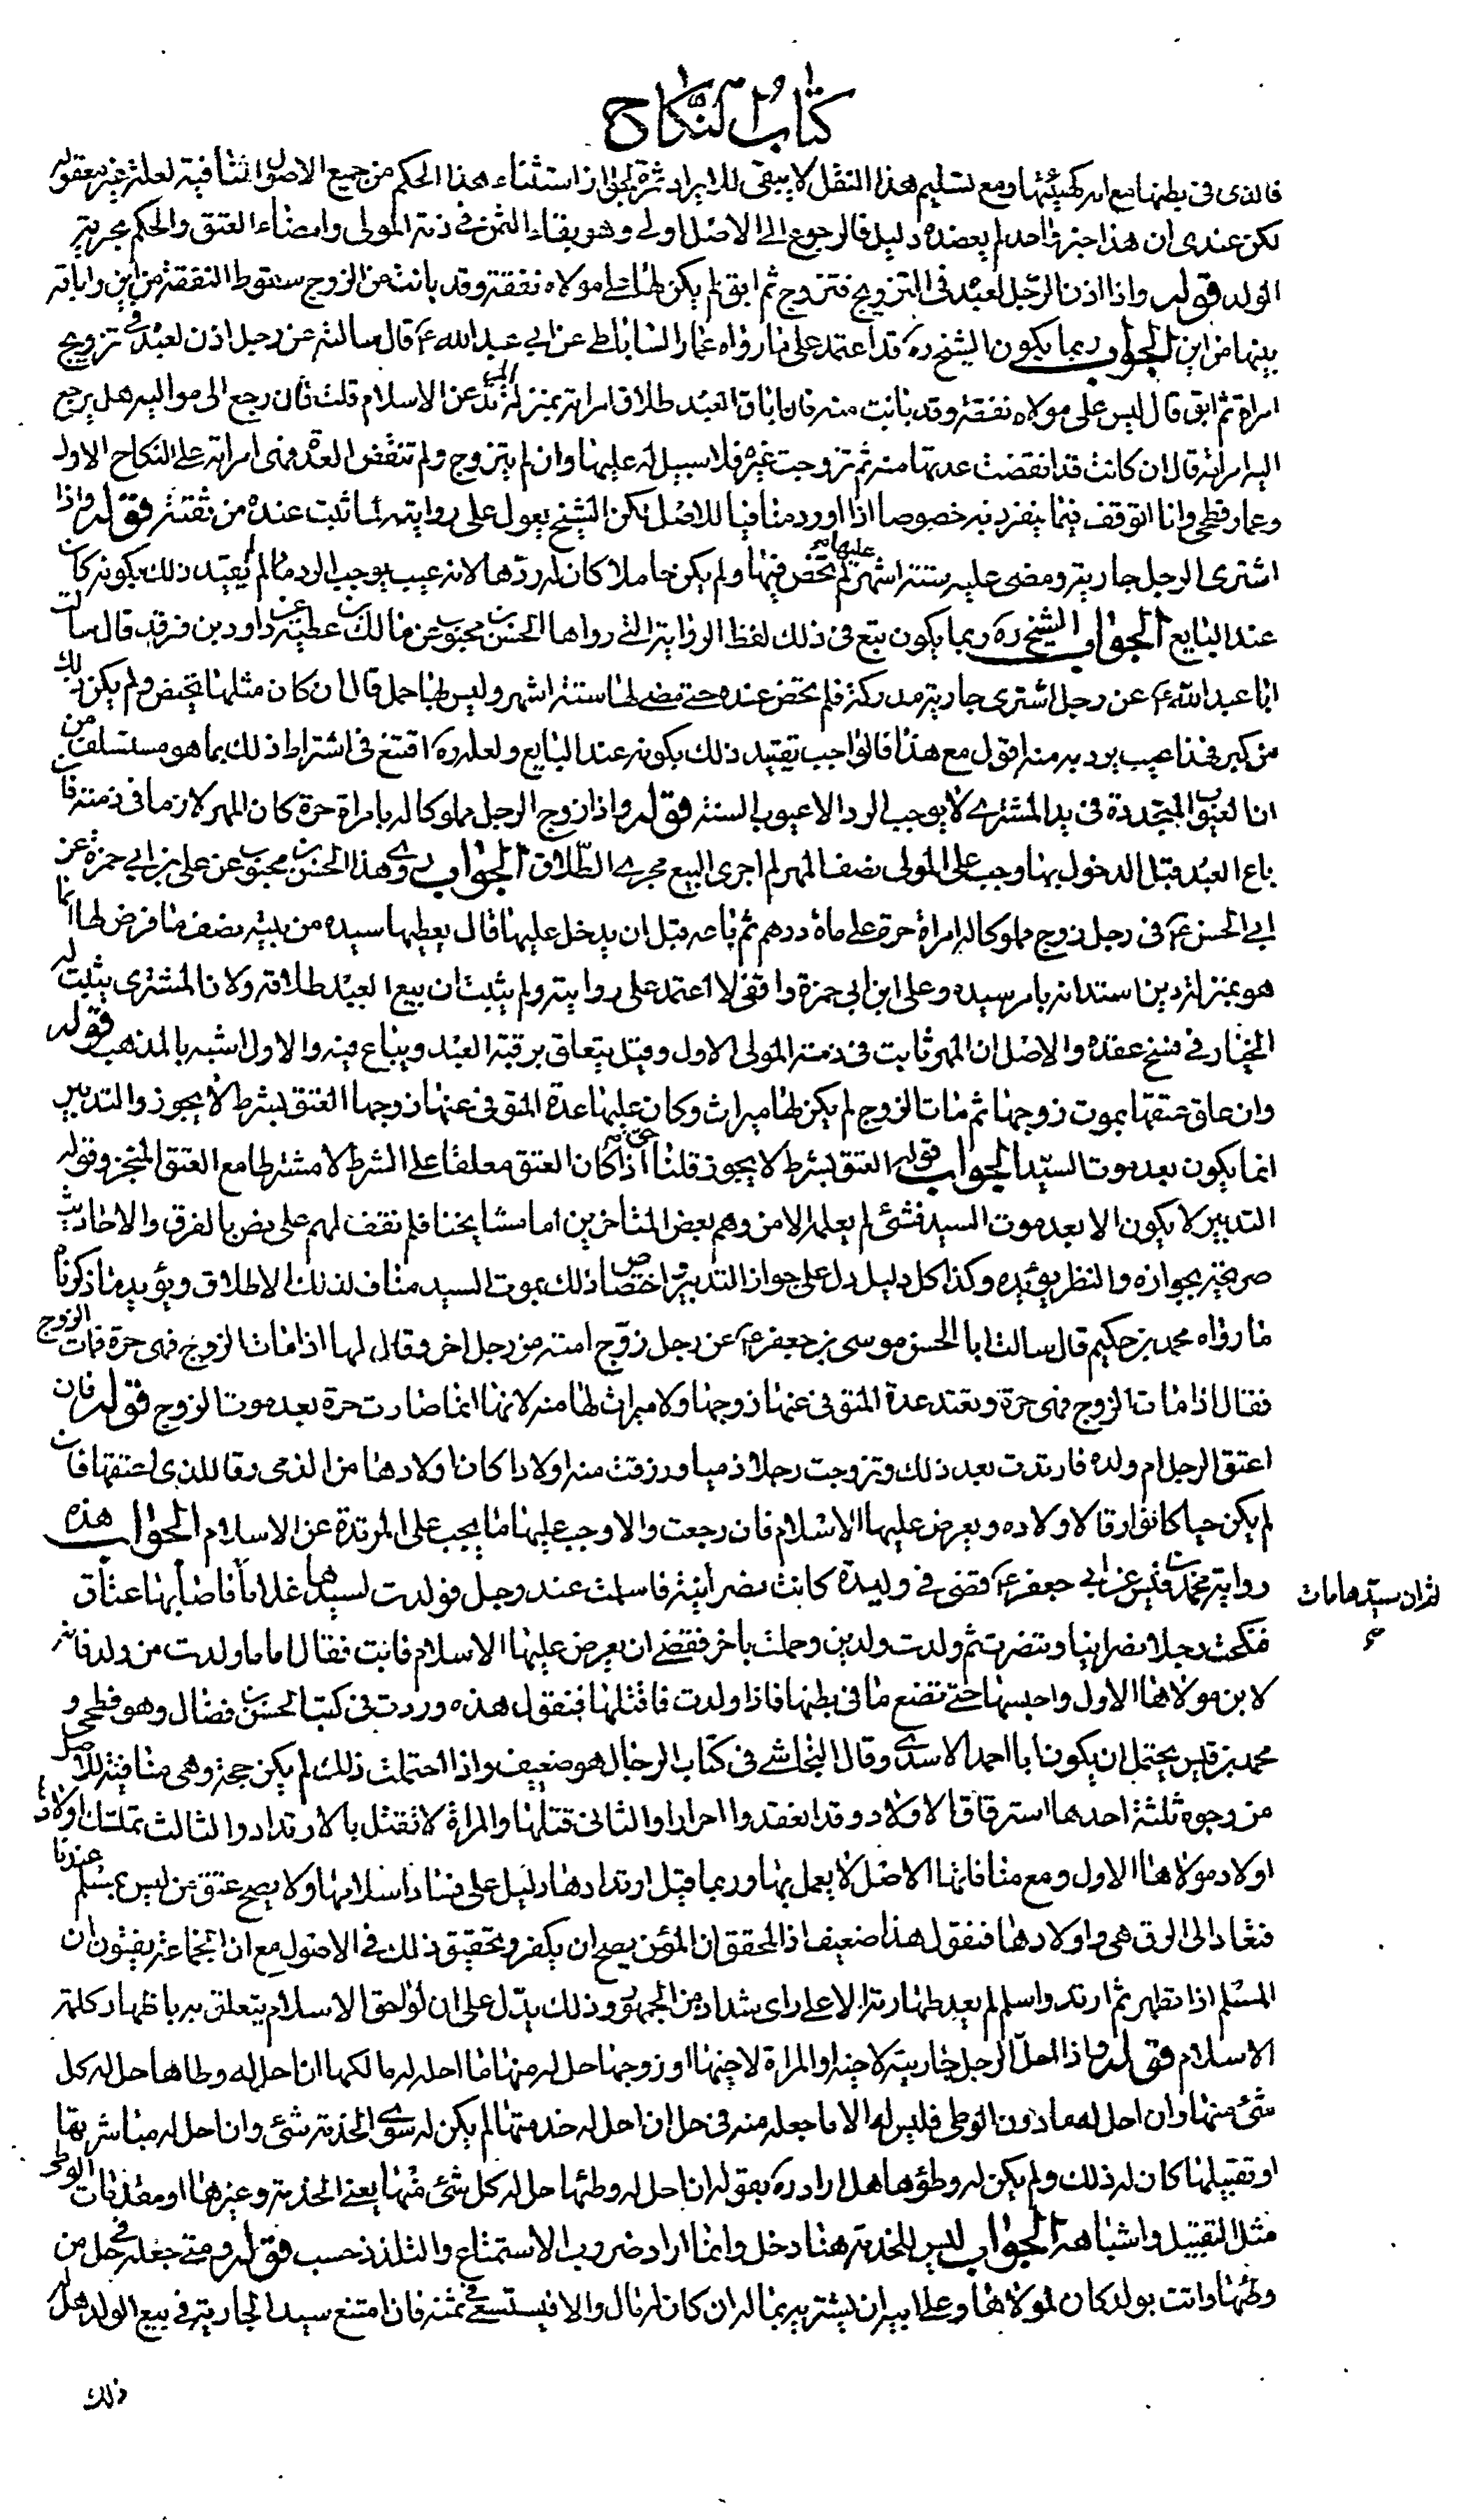 كتاب النكاح
فالذى فى بطنها مع امه كهيئتها ومع تسليم هذا النقل لا يبقى للايراد ثمرة لجواز استثناء هذا الحكم من جميع الاصول المنافية لعلة غير معقولة
لكن عندى ان هذا خبر واحد لم يعضده دليل فالرجوع الى الاصل اولى وهو بقاء الثمن فى ذمة المولى وامضاء العتق والحكم بحرية
الولد قوله واذا اذن الرجل لعبده فى التزويج فتزوج ثم ابق لم يكن لها على مولاه نفقة وقد بانت من الزوج سقوط النفقة من اين واباقه
بينها من اين الجواب ربما يكون الشيخ ره قد اعتمد على ما رواه عمار الساباطى عن ابى عبد الله ع قال سالته عن رجل اذن لعبده فى تزويج
امراة ثم ابق قال ليس على مولاه نفقة وقد بانت منه فان اباق العبد طلاق امراته بمنزلة المرتد عن الاسلام قلت فان رجع الى مواليه هل يرجع
اليه امراته قال ان كانت قد انقضت عدتها منه ثم تزوجت غيره فلا سبيل له عليها وان لم يتزوج ولم تنقض العدة فهى امراته على النكاح الاول
وعمار فطحى وانا اتوقف فيما ينفرد به خصوصا اذا اورد منافيا للاصل لكن الشيخ يعول على روايته لما ثبت عنده من ثقته قوله واذا
اشترى الرجل جارية ومضى عليه ستة اشهر لم تحض فيها ولم يكن حاملا كان له ردها لانه عيب يوجب الرد ما لم يقيد ذلك بكونه كان
عند البايع الجواب الشيخ ره ربما يكون تبع فى ذلك لفظ الرواية التى رواها الحسن بن محبوب عن مالك بن عطية عن داود بن فرقد قال سالت
ابا عبد الله ع عن رجل اشترى جارية مدركة فلم تحض عنده حتى مضى لها ستة اشهر وليس بها حمل قال ان كان مثلها تحيض ولم يكن ذلك
من كبر فهذا عيب يرد به منه اقول مع هذا فالواجب تقييد ذلك بكونه عند البايع ولعله ره اقتنع فى اشتراط ذلك بما هو مستسلف من
ان العيوب المتجددة فى يد المشترى لا يوجب الرد الا عيوب السنة قوله واذا زوج الرجل مملوكا له بامراة حرة كان المهر لازما فى ذمته فان
باع العبد قبل الدخول بها وجب على المولى نصف المهر لم اجرى البيع مجرى الطلاق الجواب روى هذا الحسن بن محبوب عن على بن ابى حمزة عن
ابى الحسن ع فى رجل زوج مملوكا له امراة حرة على ماة درهم ثم باعه قبل ان يدخل عليها قال يعطيها سيده من ثمنه نصف ما فرض لها انما
هو بمنزلة دين استدانه بامر سيده وعلى ابن ابى حمزة واقفى لا اعتمد على روايته ولم يثبت ان بيع العبد طلاقه ولان المشترى يثبت له
الخيار فى فسخ عقده والاصل ان المهر ثابت فى ذمة المولى الاول وقيل يتعلق برقبة العبد ويباع فيه والاول اشبه بالمذهب قوله
وان علق عتقها بموت زوجها ثم مات الزوج لم يكن لها ميراث وكان عليها عدة المتوفى عنها زوجها العتق بشرط لا يجوز والتدبير
انما يكون بعد موت السيد الجواب قوله العتق بشرط لا يجوز قلنا حق اذا كان العتق معلقا على الشرط لا مشترطا مع العتق المنجز وقوله
التدبير لا يكون الا بعد موت السيد فشئ لم يعلم الا من وهم بعض المتاخرين اما مشايخنا فلم نقف لهم على نص بالفرق والاحاديث
صريحة بجوازه والنظر يؤيده وكذا كل دليل دل على جواز التدبير واختصاص ذلك بموت السيد مناف لذلك الاطلاق ويؤيد ما ذكرناه
ما رواه محمد بن حكيم قال سالت ابا الحسن موسى بن جعفر ع عن رجل زوج امته من رجل اخر وقال لها اذا مات الزوج فهى حرة فمات الزوج
فقال اذا مات الزوج فهى حرة وتعتد عدة المتوفى عنها زوجها ولا ميراث لها منه لانها انما صارت حرة بعد موت الزوج قوله فان
اعتق الرجل ام ولده فارتدت بعد ذلك وتزوجت رجلا ذميا ورزقت منه اولادا كان اولادها من الذمى رقا للذى اعتقها فان
لم يكن حيا كانوا رقا لاولاده ويعرض عليها الاسلام فان رجعت والا وجب عليها ما يجب على المرتدة عن الاسلام الجواب هذه
رواية محمد بن قيس عن ابى جعفر ع قضى فى وليدة كانت نصرانية فاسلمت عند رجل فولدت لسيدها غلاما فاضابها عتاق
ثم ان سيدها مات
فنكحت رجلا نصرانيا وتنصرت ثم ولدت ولدين وحملت باخر فقضى ان يعرض عليها الاسلام فابت فقال اما ما ولدت من ولد فانه
لابن مولاها الاول واحبسها حتى تضع ما فى بطنها فاذا ولدت فاقتلها فنقول هذه وردت فى كتب الحسن بن فضال وهو فطحى و
محمد بن قيس يحتمل ان يكون ابا احمد الاسدى وقال النجاشى فى كتاب الرجال هو ضعيف واذا احتملت ذلك لم يكن حجة وهى منافية للاصل
من وجوه ثلثة احدهما استرقاق الاولاد وقد انعقدوا احرارا والثانى قتلها والمراة لا تقتل بالارتداد والثالث تملك اولادها
اولاد مولاها الاول ومع منافاتها الاصل لا يعمل بها وربما قيل ارتدادها دليل على فساد اسلامها ولا يصح عتق من ليس بمسلم عندنا
فتعاد الى الرق هى واولادها فنقول هذا ضعيف اذ المحقق ان المؤمن يصح ان يكفر وتحقيق ذلك فى الاصول مع ان الجماعة يفتون ان
المسلم اذا تطهر ثم ارتد واسلم لم يعد طهارته الا على راى شداد من الجمهور وذلك يدل على ان لواحق الاسلام يتعلق به باظهار كلمة
الاسلام قوله واذا احل الرجل جاريته لاخيه او المراة لاخيها او زوجها حل له منها ما احله له مالكها ان احل له وطاها حل له كل
شئ منها وان احل له ما دون الوطى فليس له الا ما جعله منه فى حل ان احل له خدمتها لم يكن له سوى الخدمة شئ وان احل له مباشرتها
او تقبيلها كان له ذلك ولم يكن له وطؤها هل اراد ره بقوله ان احل له وطئها حل له كل شئ منها يعنى الخدمة وغيرها او مقدمات الوطى
مثل التقبيل واشباهه الجواب ليس للخدمة هنا دخل وانما اراد ضروب الاستمتاع والتلذذ حسب قوله ومتى جعله فى حل من
وطئها واتت بولد كان لمولاها وعلى ابيه ان يشتريه بماله ان كان له مال والا فيستسعى فى ثمنه فان امتنع سيد الجارية فى بيع الولد هل له
ذلك